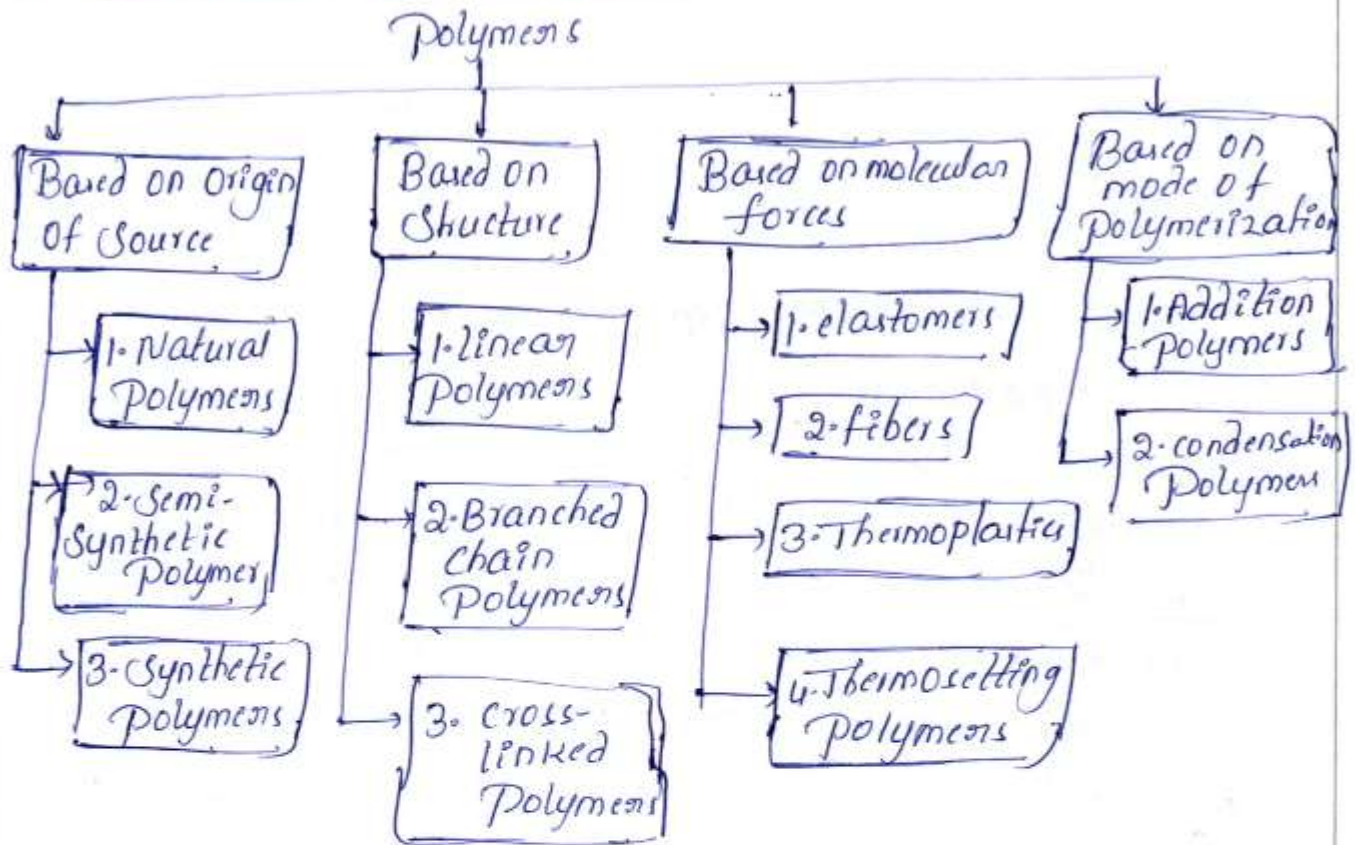 Polymers
Based on Origin
Of Source
1. Natural
Polymers
2. Semi-
Synthetic
Polymer
3. Synthetic
Polymers
Based on
Structure
1. linear
Polymers
2. Branched
Chain
Polymers
3. Cross-
linked
Polymers
Based on molecular
forces
1. elastomers
2. fibers
3. Thermoplastics
4. Thermosetting
Polymers
Based on
mode of
Polymerization
1. Addition
Polymers
2. condensation
Polymers